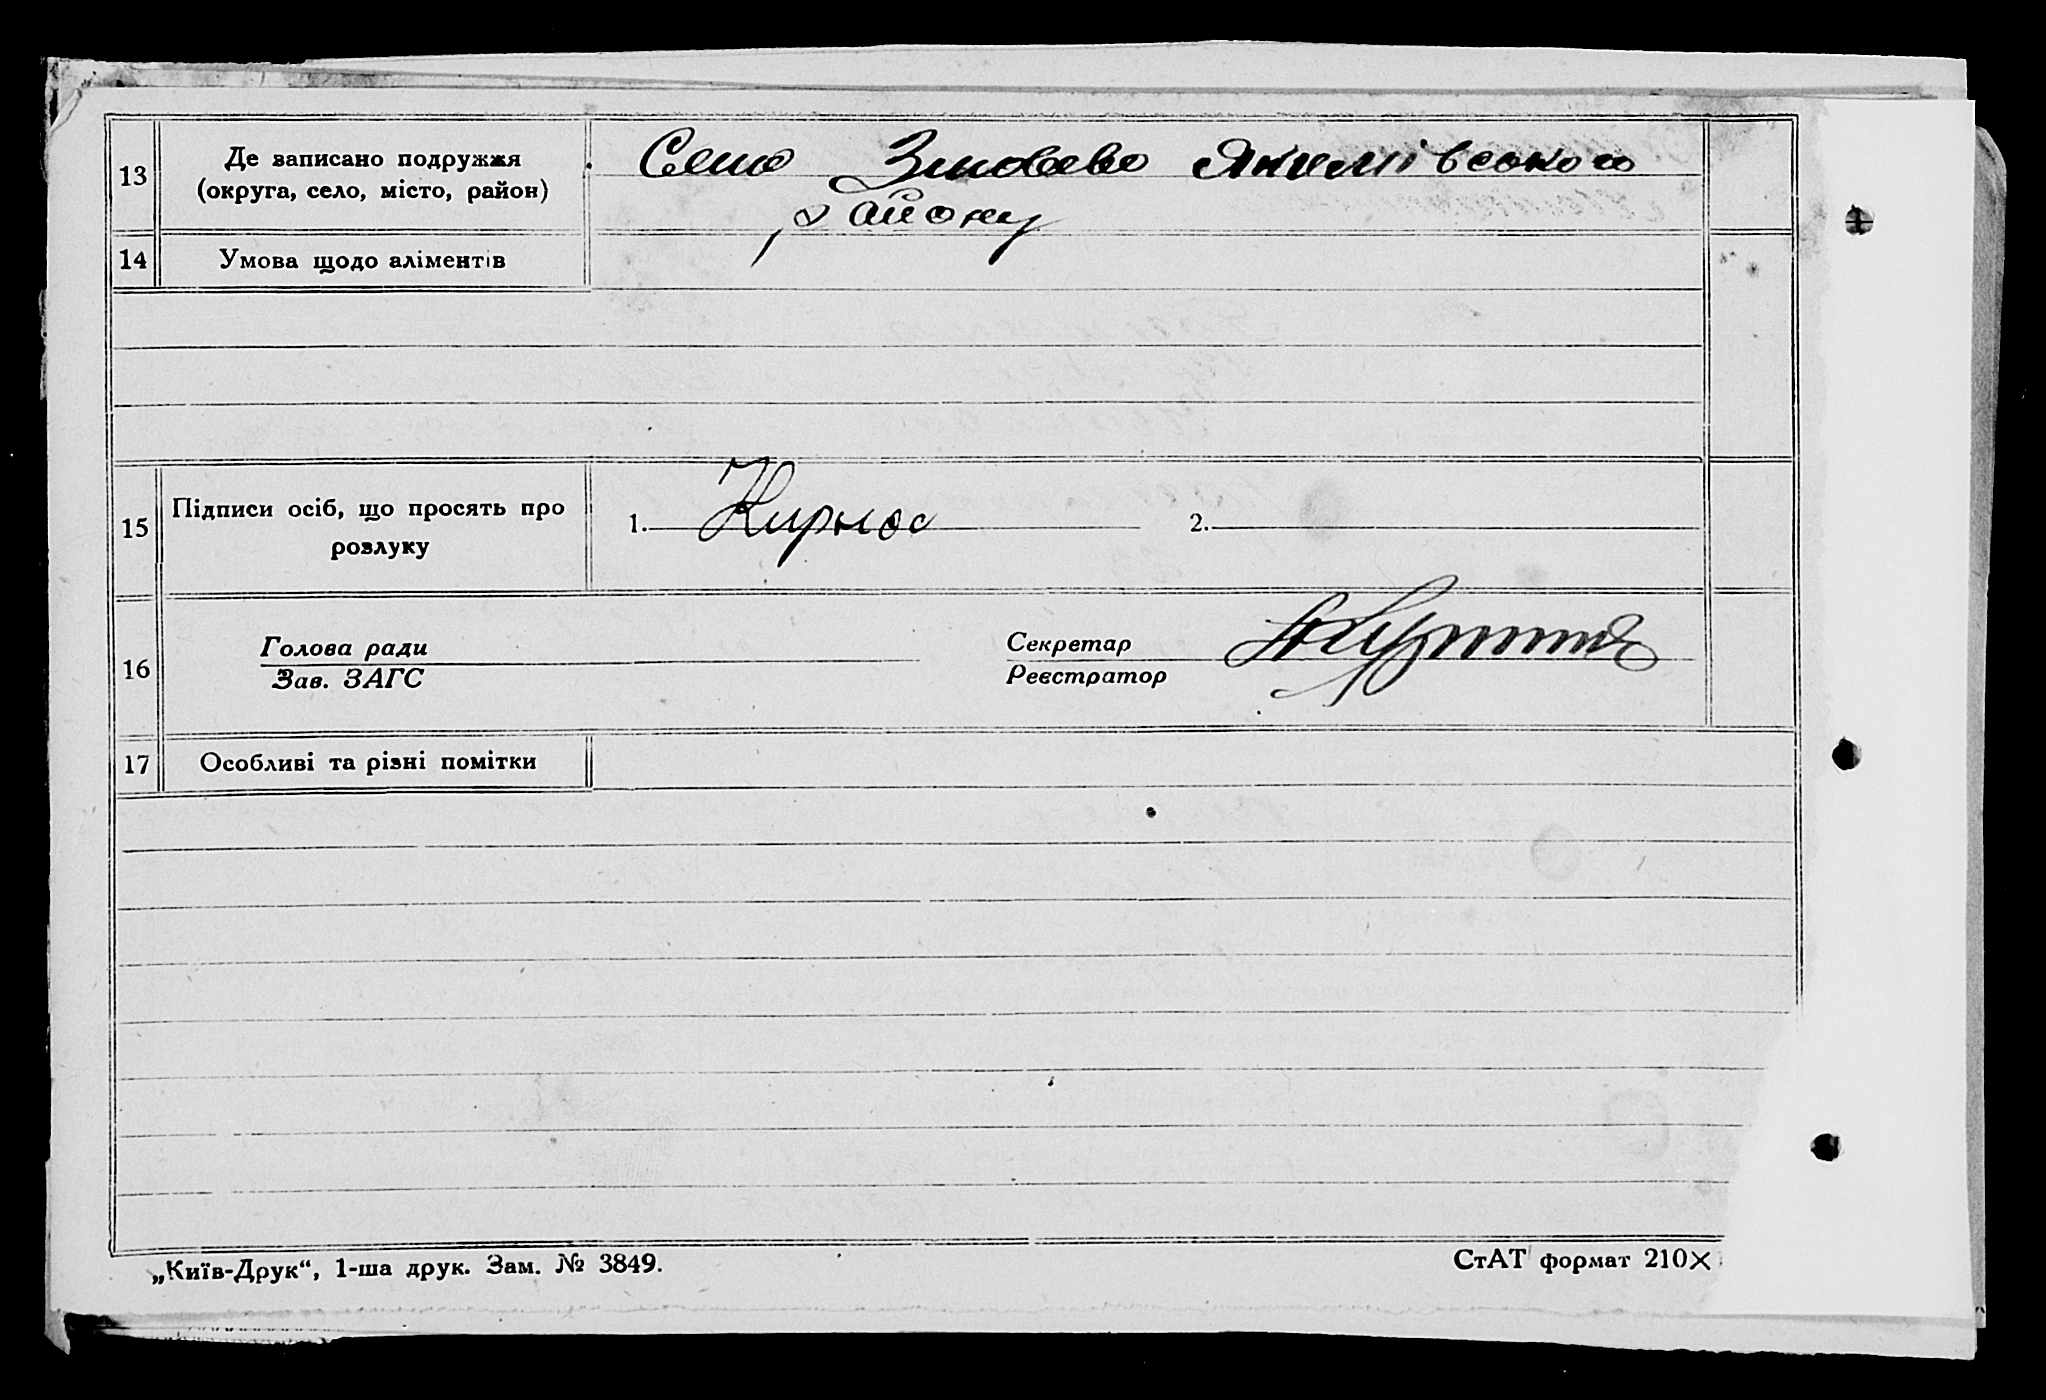 13 Де записано подружжя (округа, село, місто, район)
Село Зіновево Якимівського
району
14 Умова щодо аліментів
15 Підписи осіб, що просять про розлуку
1. Кирнос 2.
16 Голова ради
Зав. ЗАГС
Секретар
Реєстратор
17 Особливі та різні помітки
„Київ-Друк“, 1-ша друк. Зам. № 3849.
СтАТ формат 210×